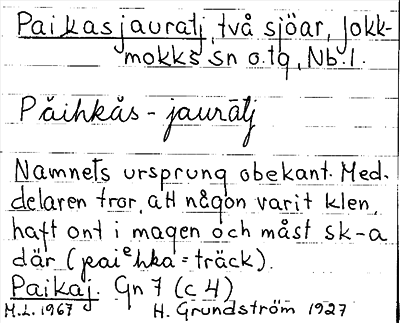 Paikasjauratj, två sjöar, Jokk-
mokks sn o. tg, Nb. l.
Påihkås - jaurātj
Namnets ursprung obekant. Med-
delaren tror, att någon varit klen,
haft ont i magen och måst sk-a
där (paiᵉhka = träck).
Paikaj. Gn 7 (c 4)
M.L. 1967 H. Grundström 1927